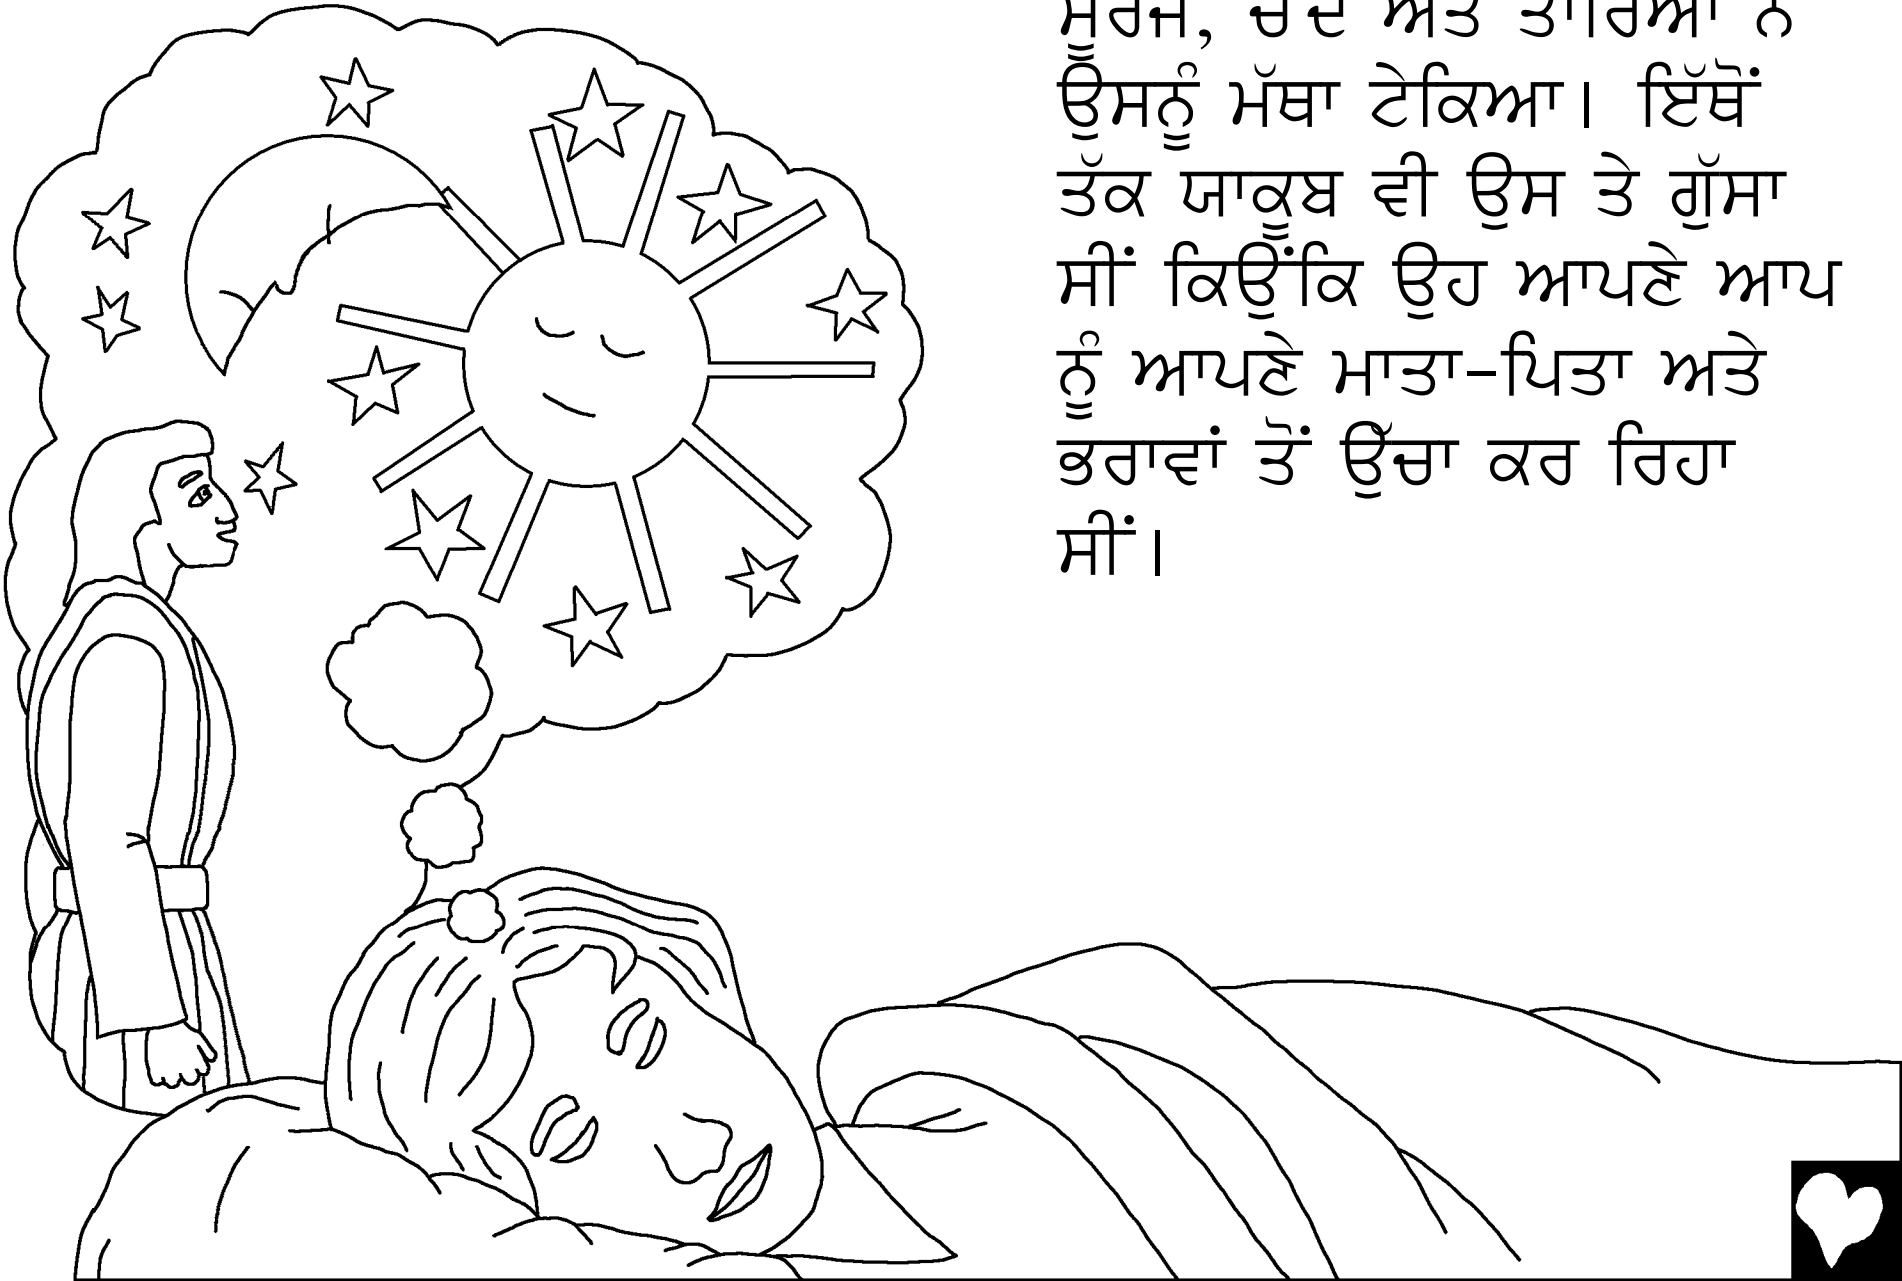 ਸੂਰਜ, ਚੰਦ ਅਤੇ ਤਾਰਿਆਂ ਨੇ
ਉਸਨੂੰ ਮੱਥਾ ਟੇਕਿਆ। ਇੱਥੋਂ
ਤੱਕ ਯਾਕੂਬ ਵੀ ਉਸ ਤੇ ਗੁੱਸਾ
ਸੀਂ ਕਿਉਂਕਿ ਉਹ ਆਪਣੇ ਆਪ
ਨੂੰ ਆਪਣੇ ਮਾਤਾ-ਪਿਤਾ ਅਤੇ
ਭਰਾਵਾਂ ਤੋਂ ਉੱਚਾ ਕਰ ਰਿਹਾ
ਸੀਂ।